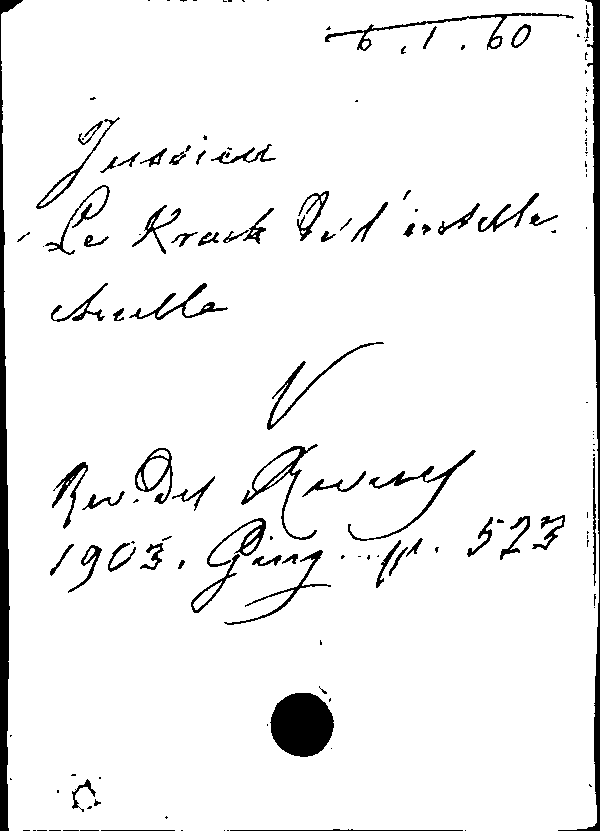 6.1.60
Jussieu
Le Krack de l'intelle-
ctuelle
V
Rev. des Revues
1903. Giug. p. 523